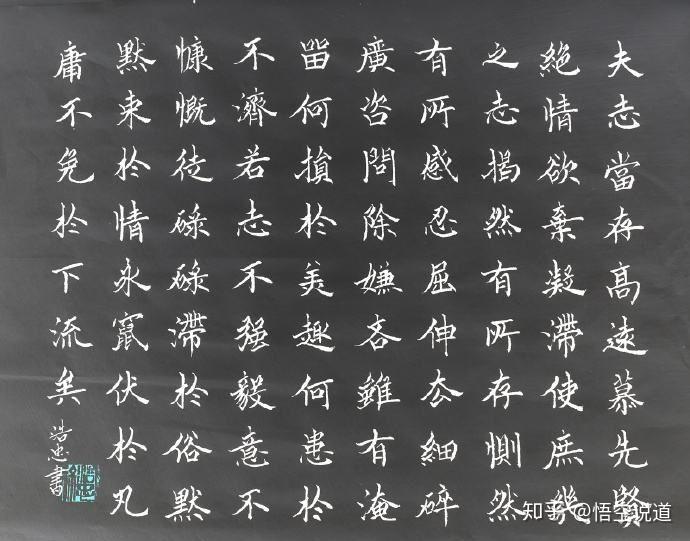 夫志當存高遠慕先賢
絶情欲棄凝滯使庶幾
之志揭然有所存惻然
有所感忍屈伸去細碎
廣咨問除嫌吝雖有淹
留何損於美趣何患於
不濟若志不强毅意不
慷慨徒碌碌滯於俗默
默束於情永竄伏於凡
庸不免於下流矣
浩忠書
知乎 @悟空说道